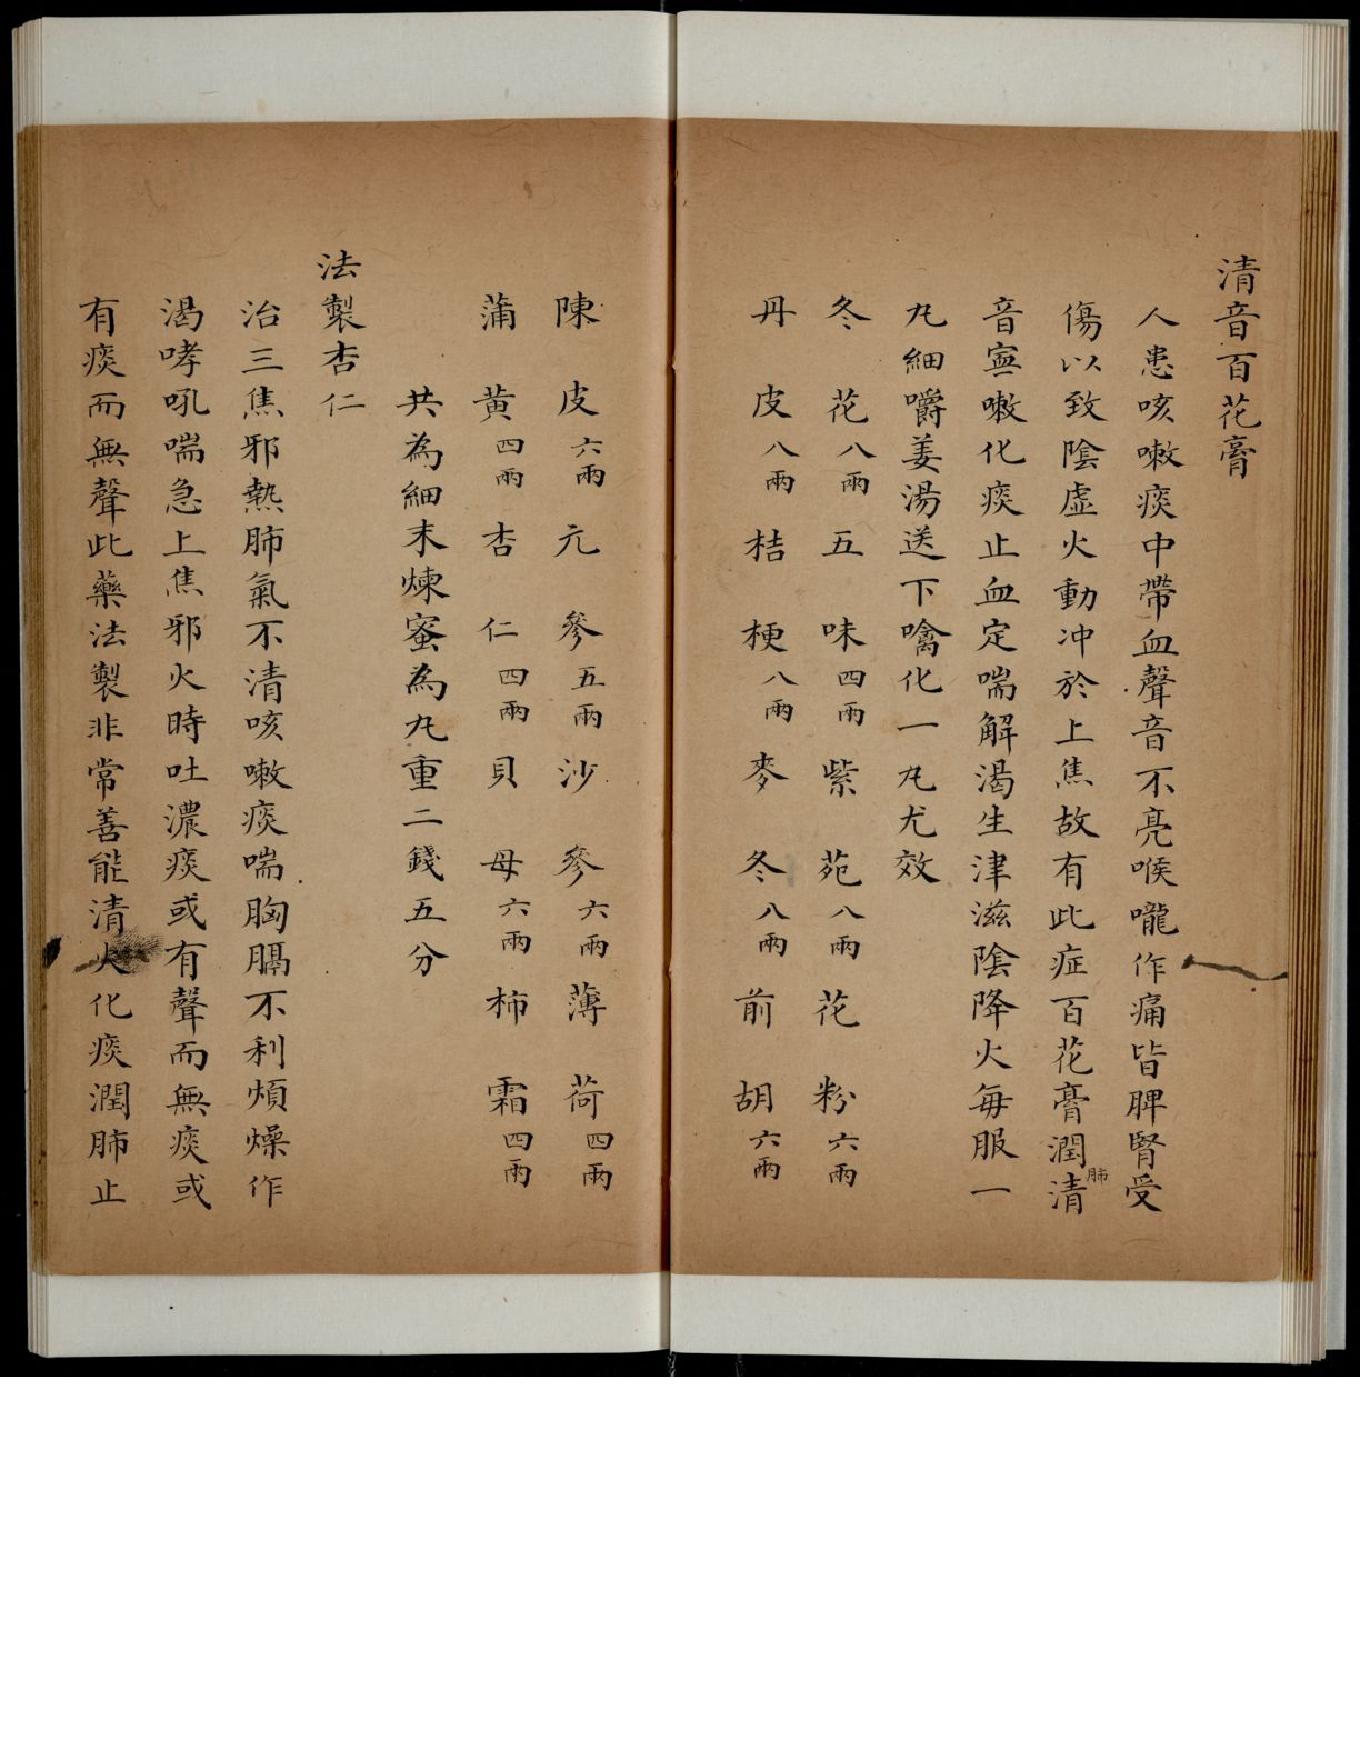 清音百花膏
人患咳嗽痰中帶血聲音不亮喉嚨作痛皆脾腎受
傷以致陰虛火動冲於上焦故有此症百花膏潤肺清
音寧嗽化痰止血定喘解渴生津滋陰降火每服一
丸細嚼姜湯送下噙化一丸尤效
冬花八兩五味四兩紫苑八兩花粉六兩
丹皮八兩桔梗八兩麥冬八兩前胡六兩
陳皮六兩元參五兩沙參六兩薄荷四兩
蒲黃四兩杏仁四兩貝母六兩柿霜四兩
共為細末煉蜜為丸重二錢五分
法製杏仁
治三焦邪熱肺氣不清咳嗽痰喘胸膈不利煩燥作
渴哮吼喘急上焦邪火時吐濃痰或有聲而無痰或
有痰而無聲此藥法製非常善能清火化痰潤肺止